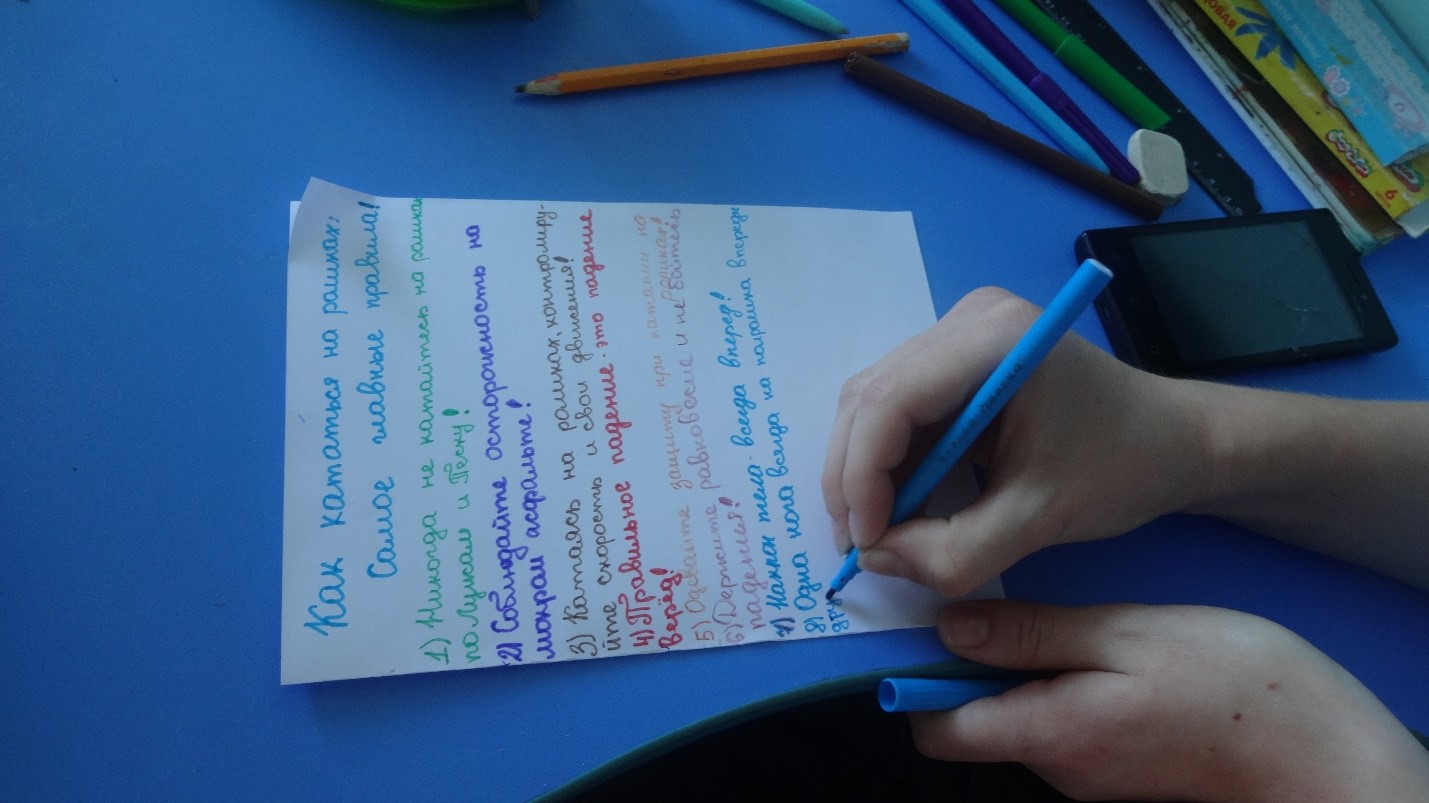 Как кататься на роликах:
Самое главные правила!
1) Никогда не катайтесь на роликах
по лужам и песку!
2) Соблюдайте осторожность на
мокром асфальте!
3) Катаясь на роликах, контролиру-
йте скорость и свои движения!
4) Правильное падение - это падение
верёд!
5) Одевайте защиту при катании на
роликах!
6) Держите равновесие и не бойтесь
падений!
7) Наклон тела - всегда вперед!
8) Одна нога всегда на полролика впереди
дру
6